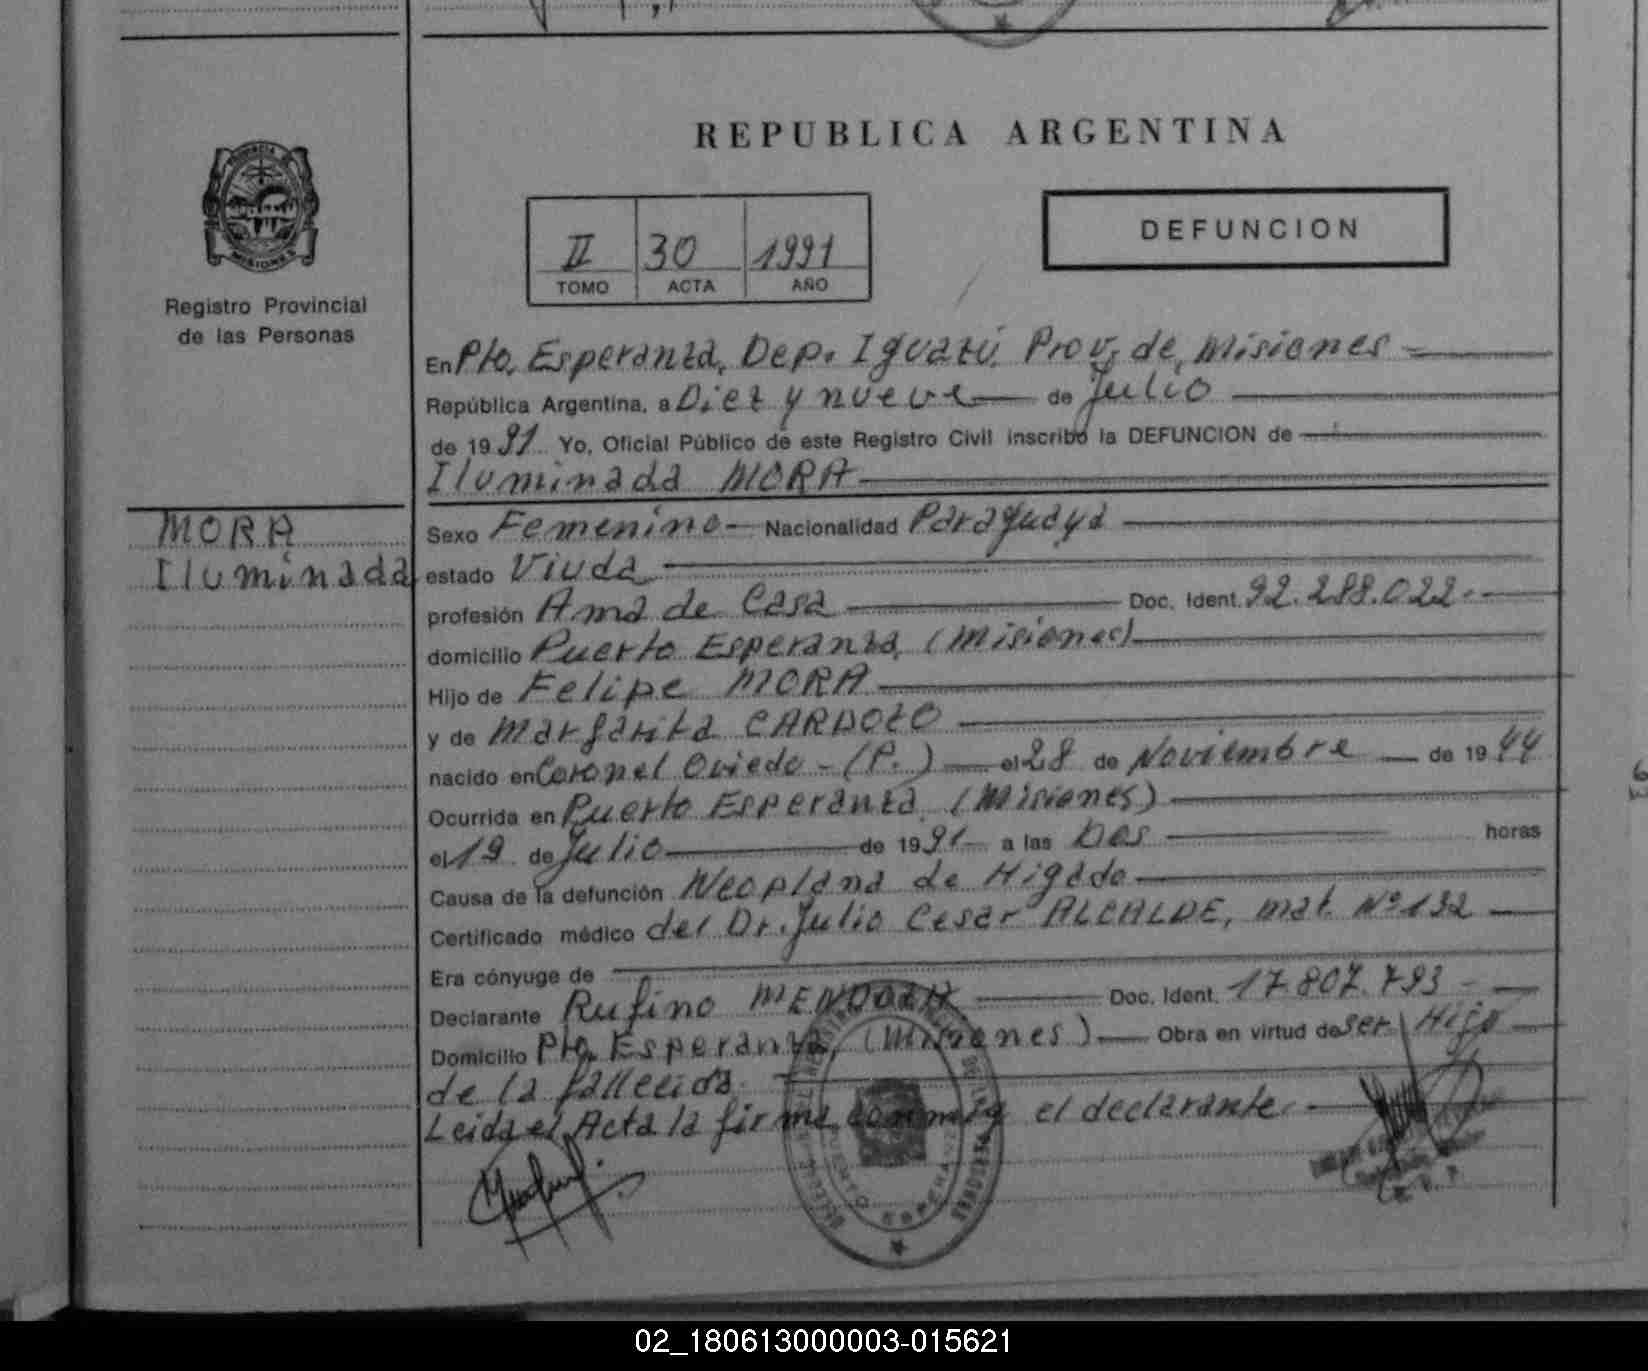 REPUBLICA ARGENTINA
PROVINCIA DE
MISIONES
Registro Provincial
de las Personas
II 30 1991
TOMO ACTA AÑO
DEFUNCION
En Pto. Esperanza, Dep. Iguazú, Prov. de Misiones
República Argentina, a Diez y nueve de Julio
de 1991 Yo, Oficial Público de este Registro Civil inscribo la DEFUNCION de
Iluminada MORA
MORA
Iluminada
Sexo Femenino Nacionalidad Paraguaya
estado Viuda
profesión Ama de Casa Doc. Ident. 92.288.022.-
domicilio Puerto Esperanza, (Misiones)
Hijo de Felipe MORA
y de Margarita CARDOZO
nacido en Coronel Oviedo - (P.) el 28 de Noviembre de 1944
Ocurrida en Puerto Esperanza, (Misiones)
el 19 de Julio de 1991 a las Dos horas
Causa de la defunción Neoplana de Higado
Certificado médico del Dr. Julio Cesar ALCALDE, mat. Nº 132
Era cónyuge de
Declarante Rufino MENDOZA Doc. Ident. 17.807.793 -
Domicilio Pto. Esperanza, (Misiones) Obra en virtud de ser Hijo
de la fallecida.
Leida el Acta la firma conmigo el declarante.
02_180613000003-015621